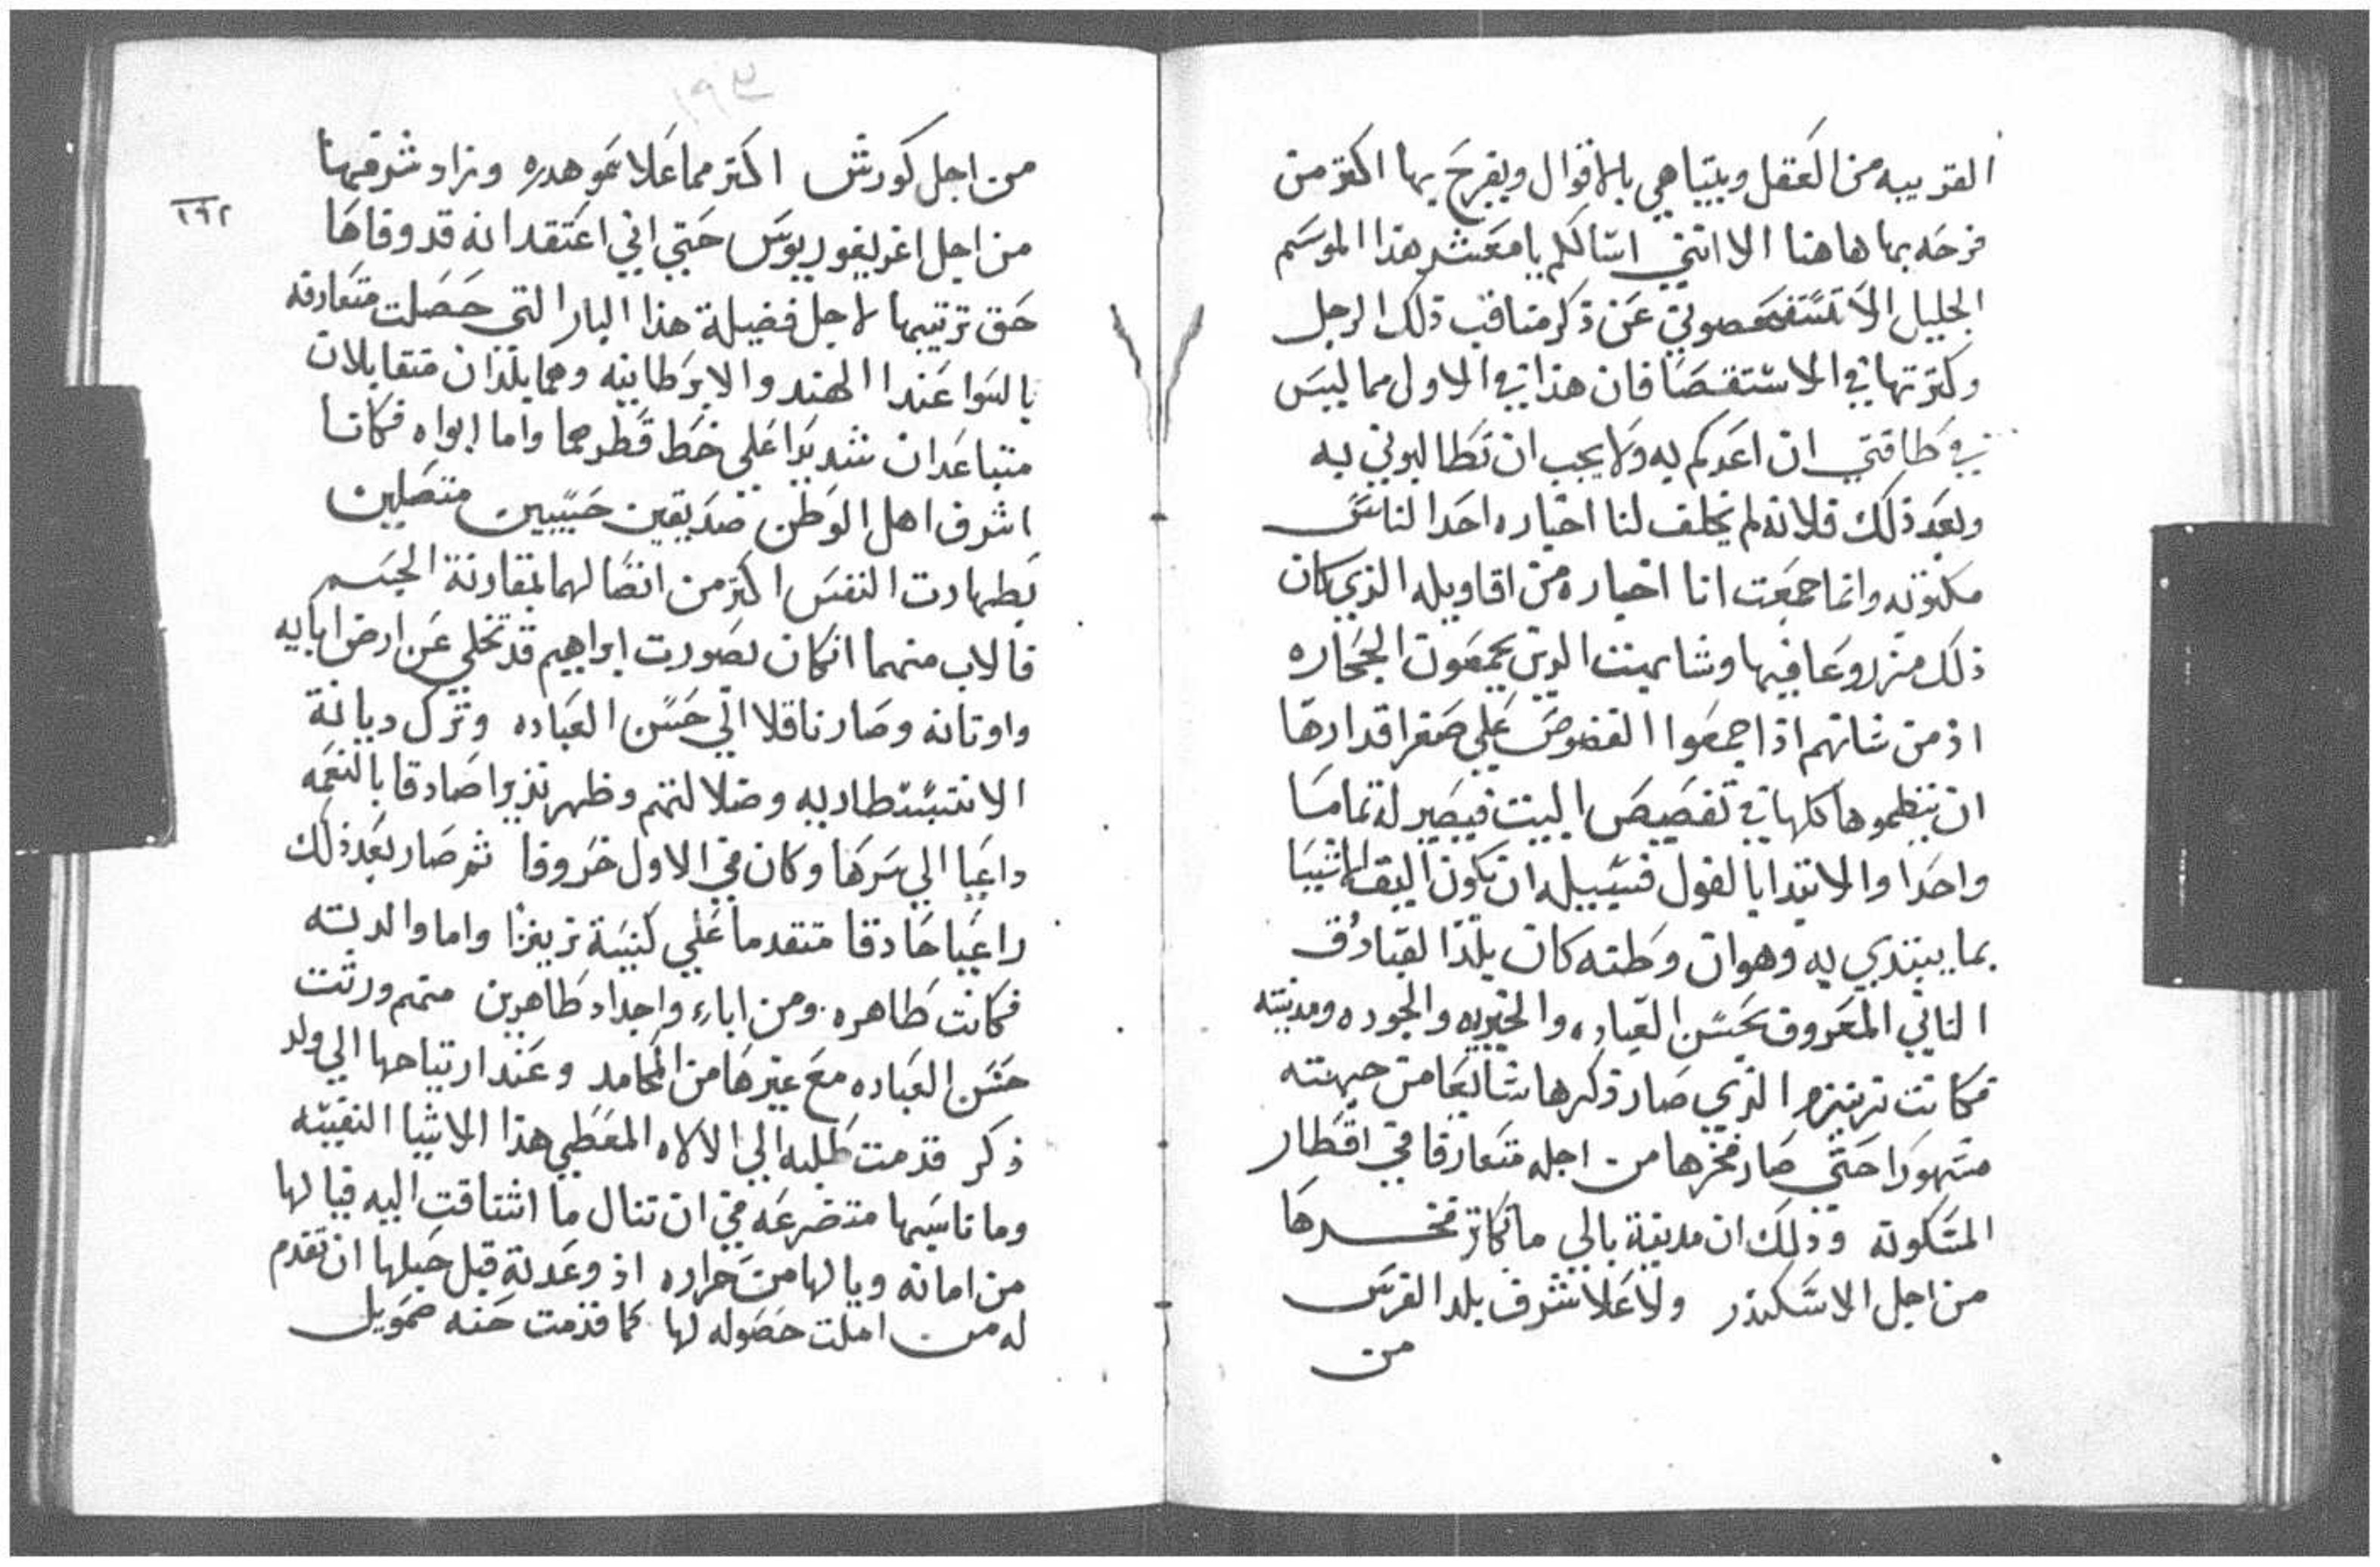 القريبه من العقل ويتباهي بالاقوال ويفرح بها اكتر من
فرحه بما هاهنا الا انني اسالكم يا معشر هذا الموسم
الجليل الا تستفحصوني عن ذكر مناقب ذلك الرجل
وكترتها في الاستقصا فان هذا في الاول مما ليس
في طاقتي ان اعدكم به ولا يجب ان تطالبوني به
وبعد ذلك فلانه لم يخلف لنا اخباره احد الناس
مكتوبه وانما جمعت انا اخباره من اقاويله الذي كان
ذلك مزروعا فيها وشابهت الدين يجمعون الحجاره
اذ من شانهم اذا جمعوا الفصوص علي صغر اقدارها
ان ينظموها كلها في تفصيص البيت فيصير له تماما
واحدا والابتدا بالقول فسبيله ان يكون اليق الاشيا
بما يبتدي به وهو ان وطنه كان بلد القبادق
التاني المعروف بحسن العباده والخيريه والجوده ومدينته
فكانت تريزو الذي صار ذكرها شايعا من جهته
مشهورا حتي صار فخرها من اجله متعارفا في اقطار
المسكونه وذلك ان مدينة بالي ما تكاتر فخرها
من اجل الاسكندر ولا علا شرف بلد الفرس
من
١٩٣
١٩٢
من اجل كورش اكتر مما علا سمو هدره وزاد شرفها
من اجل اغريغوريوس حتي اني اعتقد انه قد وفاها
حق تربيتها لاجل فضيلة هذا البار التي حصلت متعارفه
بالسوا عند الهند والابرطانيه وهما بلدان متقابلان
متباعدان شديدا علي خط قطرهما واما ابواه فكانا
اشرف اهل الوطن صديقين حبيبين متصلين
بطهارت النفس اكتر من اتصالهما بمقارنة الجسم
فالاب منهما انكان بصورت ابراهيم قد تخلي عن ارض ابايه
واوتانه وصار ناقلا الي حسن العباده وترك ديانة
الابتستطاريه وضلالتهم وظهر نذيرا صادقا بالنعمه
داعيا الي سرها وكان في الاول خروفا ثم صار بعد ذلك
راعيا حادقا متقدما علي كنيسة تريزو واما والدته
فكانت طاهره ومن اباء واجداد طاهرين منهم ورتت
حسن العباده مع غيرها من المحامد وعند ارتياحها الي ولد
ذكر قدمت طلبه الي الالاه المعطي هذا الاشيا النفيسه
وما ناسبها متضرعه في ان تنال ما اشتاقت اليه فيا لها
من امانه ويا لها من حراره اذ وعدته قبل حبلها ان تقدم
له من املت حصوله لها كما قدمت حنه صمويل